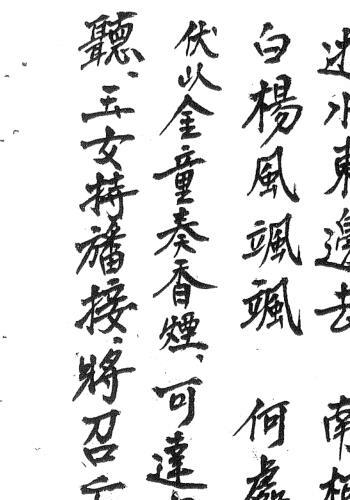 水東邊去 南
白楊風颯颯 何處
伏以金童奏香煙、可達
聽、玉女持旛接、將召